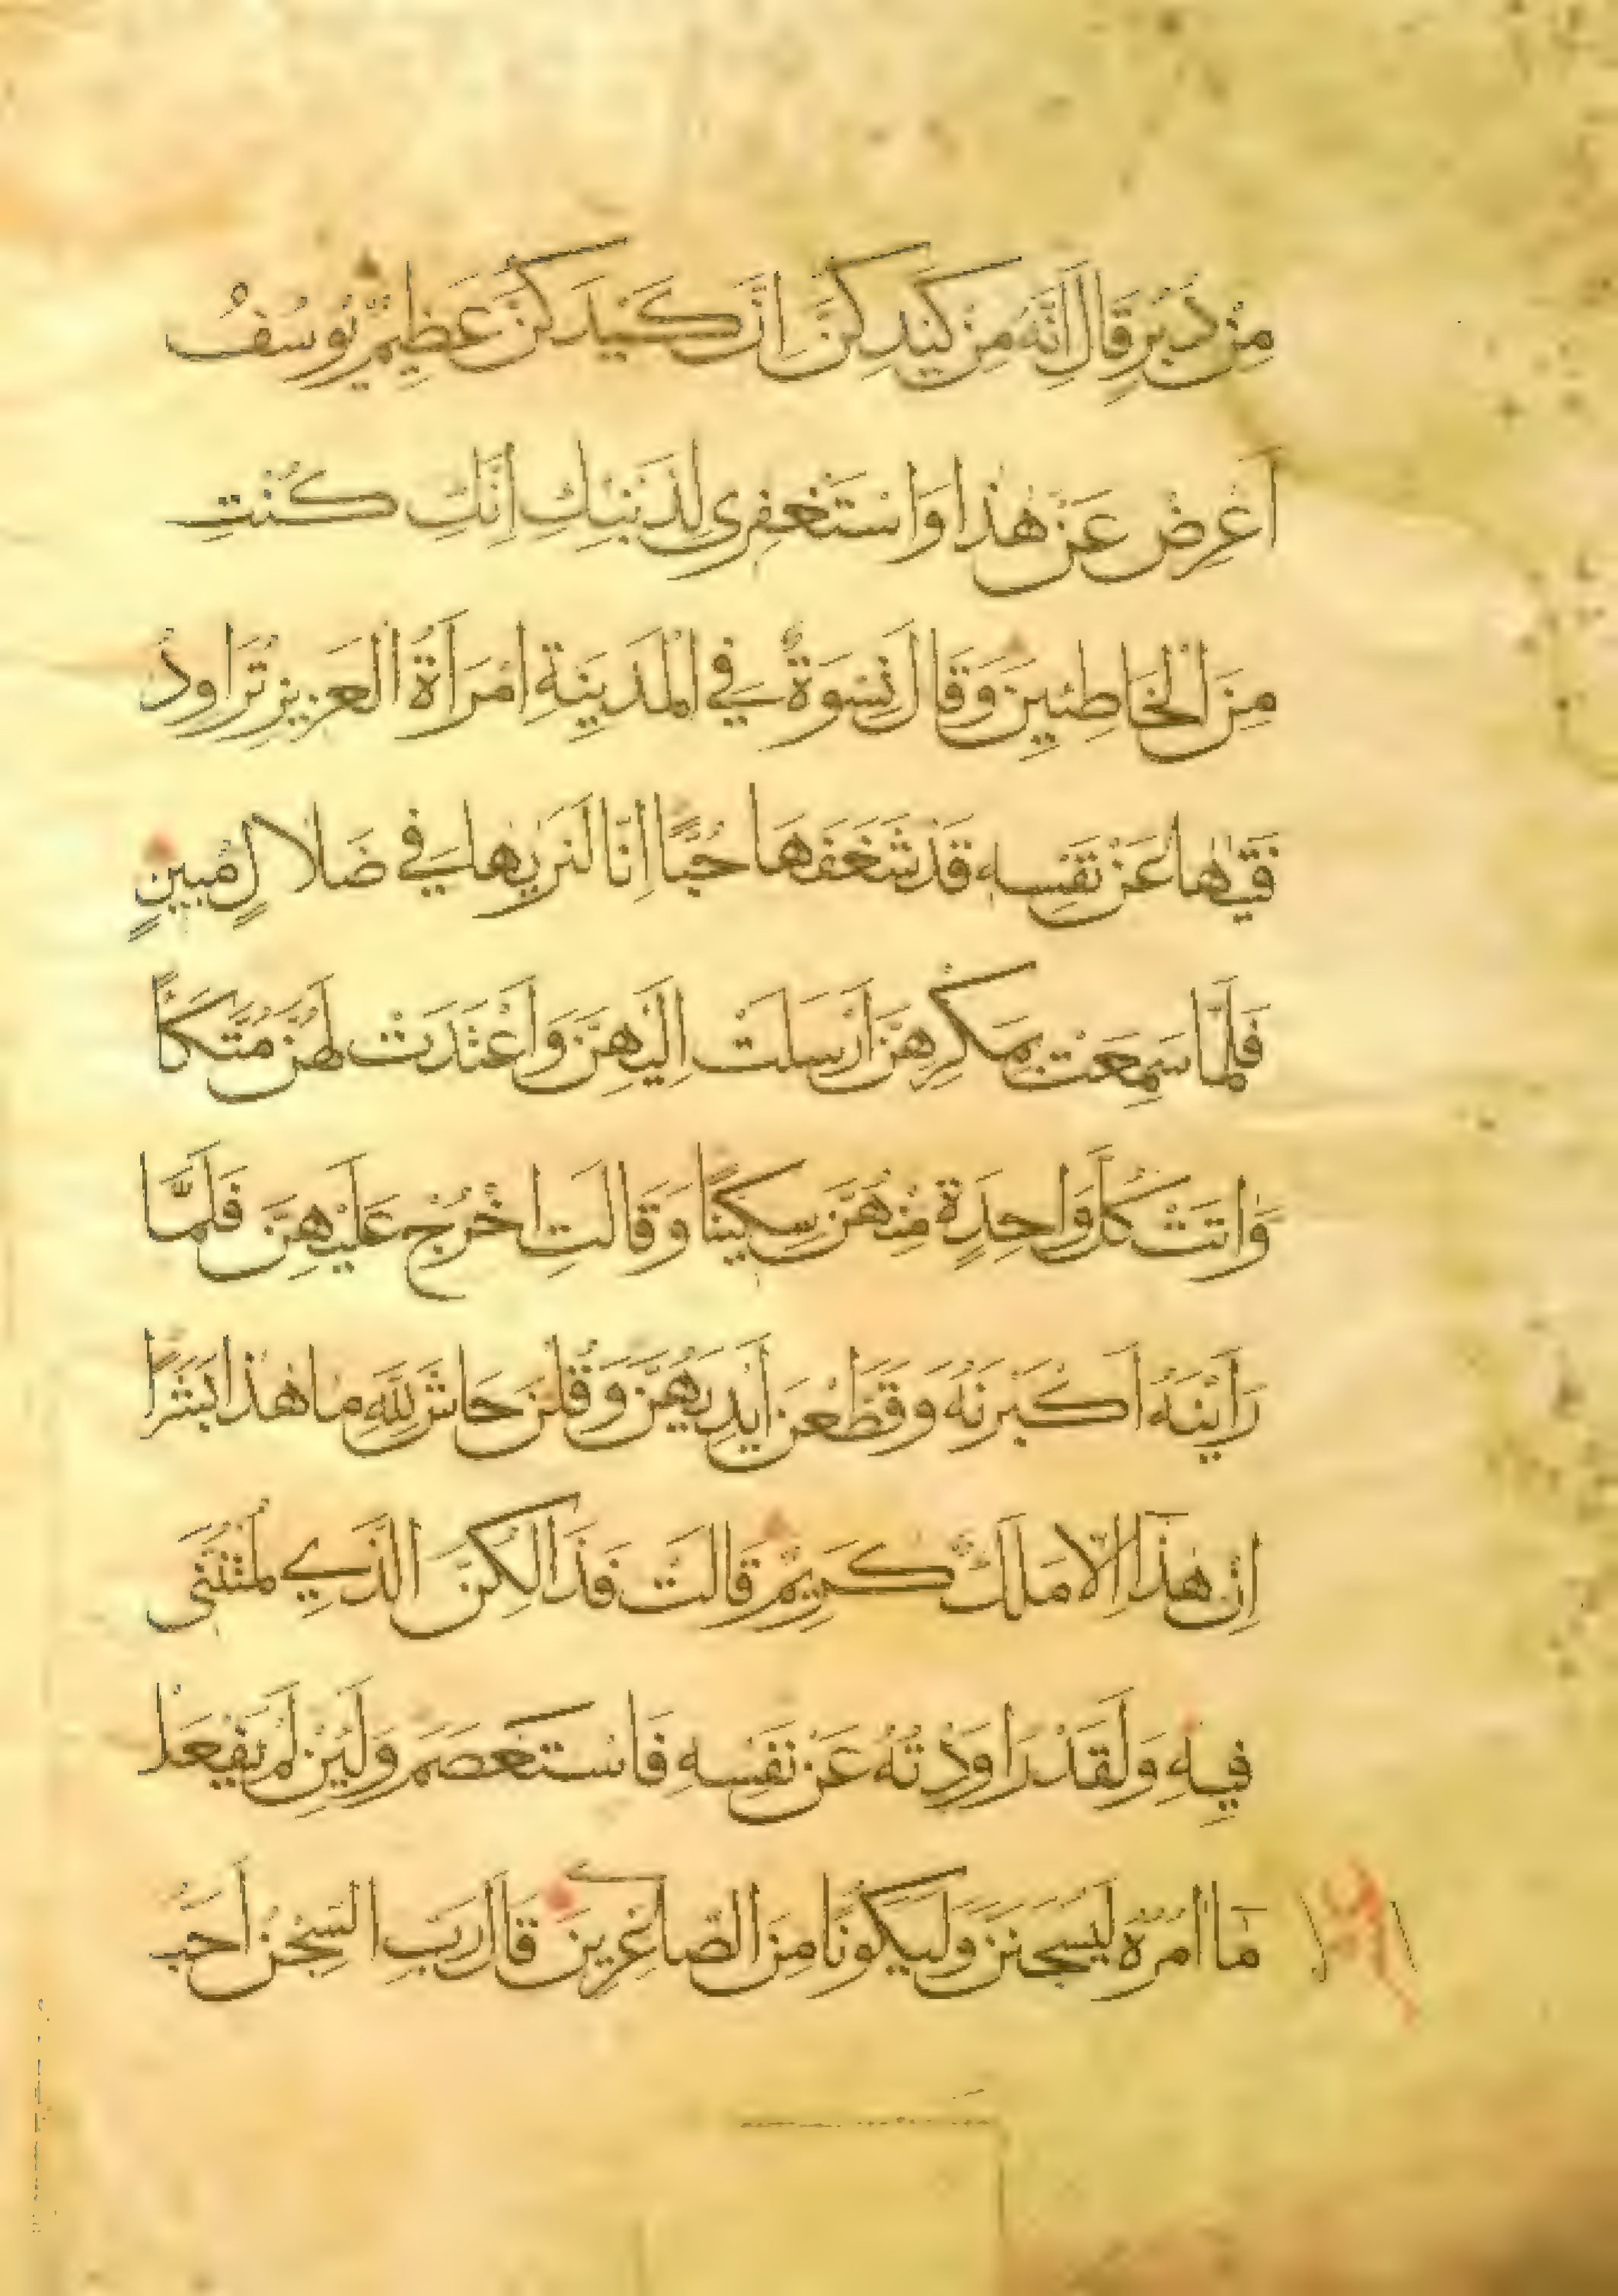 مِنْ دُبُرٍ قَالَ اِنَّهُ مِنْ كَيْدِكُنَّ اِنَّ كَيْدَكُنَّ عَظِيمٌ يُوسُفُ
اَعْرِضْ عَنْ هٰذَا وَاسْتَغْفِرِى لِذَنْبِكِ اِنَّكِ كُنْتِ
مِنَ الْخَاطِئِينَ وَقَالَ نِسْوَةٌ فِي الْمَدِينَةِ امْرَاَةُ الْعَزِيزِ تُرَاوِدُ
فَتٰيهَا عَنْ نَفْسِهِ قَدْ شَغَفَهَا حُبًّا اِنَّا لَنَرٰيهَا فِي ضَلَالٍ مُبِينٍ
فَلَمَّا سَمِعَتْ بِمَكْرِهِنَّ اَرْسَلَتْ اِلَيْهِنَّ وَاَعْتَدَتْ لَهُنَّ مُتَّكَاً
وَاٰتَتْ كُلَّ وَاحِدَةٍ مِنْهُنَّ سِكِّينًا وَقَالَتِ اخْرُجْ عَلَيْهِنَّ فَلَمَّا
رَاَيْنَهُ اَكْبَرْنَهُ وَقَطَّعْنَ اَيْدِيَهُنَّ وَقُلْنَ حَاشَ لِلّٰهِ مَا هٰذَا بَشَرًا
اِنْ هٰذَا اِلَّا مَلَكٌ كَرِيمٌ قَالَتْ فَذَالِكُنَّ الَّذِي لُمْتُنَّنِى
فِيهِ وَلَقَدْ رَاوَدْتُهُ عَنْ نَفْسِهِ فَاسْتَعْصَمَ وَلَئِنْ لَمْ يَفْعَلْ
مَا اٰمُرُهُ لَيُسْجَنَنَّ وَلَيَكُونًا مِنَ الصَّاغِرِينَ قَالَ رَبِّ السِّجْنُ اَحَبُّ